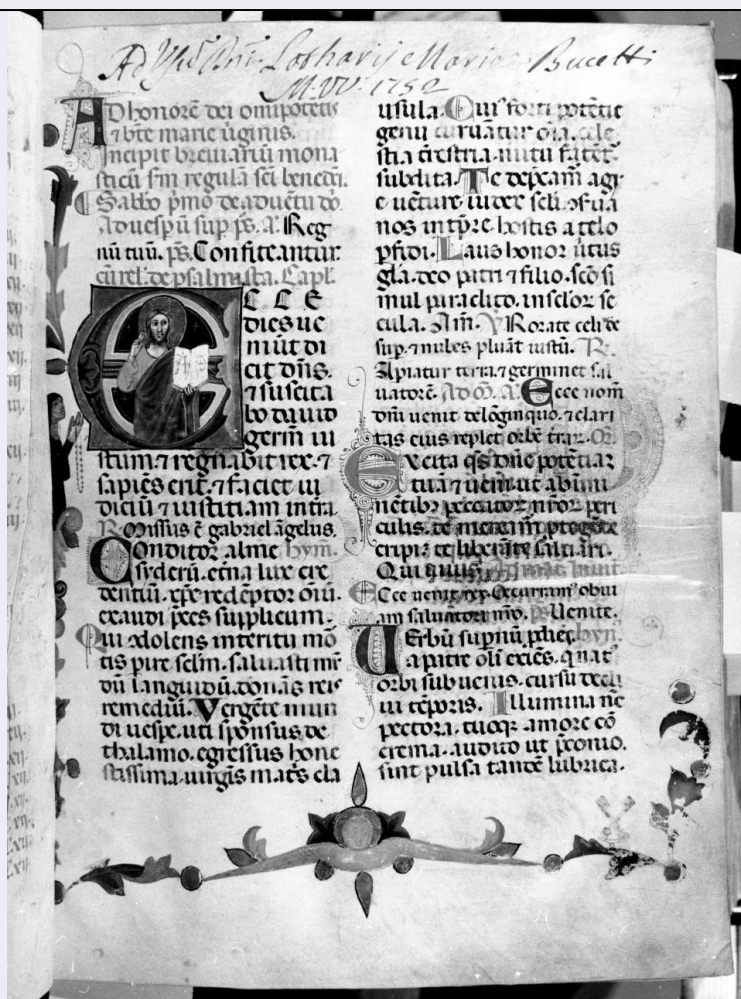 Lotharij Marie Bucetti
1752
AD honorē dei omīpotētis
⁊ bt̄e marie ūginis.
Incipit breuiariū mona
sticū s̄m regulā sc̄i benedc̄i.
Sabbo p̄mo de aduētu dō.
Ad uesp̄ū sup ps. a. Reg
nū tuū. ps. Confiteantur
cū rel. de psalmista. Capl.
ECCE
dies ue
niūt di
cit dn̄s.
⁊ suscita
bo dauid
germ̄ iu
stum. ⁊ regnabit rex. ⁊
sapiēs erit. ⁊ faciet iu
diciū ⁊ iustitiam in tr̄a.
R. Missus ē gabriel āgelus.
Conditor alme hym̄.
syderū. etn̄a lux cre
dentiū. xp̄e redēptor oīu.
exaudi p̄ces supplicum.
Qui 9dolens interitu mō
tis pire sclm̄. saluasti mū
dū languidū. donās reis
remediū. Vergēte mun
di uesp̄e. uti sponsus de
thalamo. egressus hone
stissima. uirgīs mat̄s cla
usula. Cuīs forti potētie
genu curuātur oīa. cele
stia t̄restria. nutu fatēt̄
subdita. Te dep̄camʼ agi
e uēture iudex scl̄i. 9serua
nos in tp̄re. hostis a telo
pfidi. Laus honor ūtus
gl̄a. deo patri ⁊ filio. scō si
mul paraclito. in sclor̄ se
cula. Am̄. V Rorate celi de
sup. ⁊ nubes pluāt iustū. R.
Apiatur terra. ⁊ germinet sal
uatorē. Ad M̄. A. Ecce nom̄
dn̄i uenit de lōginquo. ⁊ clari
tas eius replet orbē tr̄ar. Or.
Excita qs dn̄e potētiaz
tuā ⁊ ueni. ut ab īmi
nētibz peccator̄ nr̄or peri
culis. te meream̄ p̄tegēte
eripi. te liberāte saluari.
Qui uiuis. Ad mat. Inuit.
Ecce uenit rex. Occuramʼ obui
am saluatori nr̄o. ps. Uenite.
Uerbū supnū pdiēs. hyn.
a patre olī exiēs. q nat
orbi subuenis. cursu decli
ui tēporis. Illumina nc̄
pectora. tuoq; amore cō
crema. audito ut p̄conio.
sint pulsa tandē lubrica.